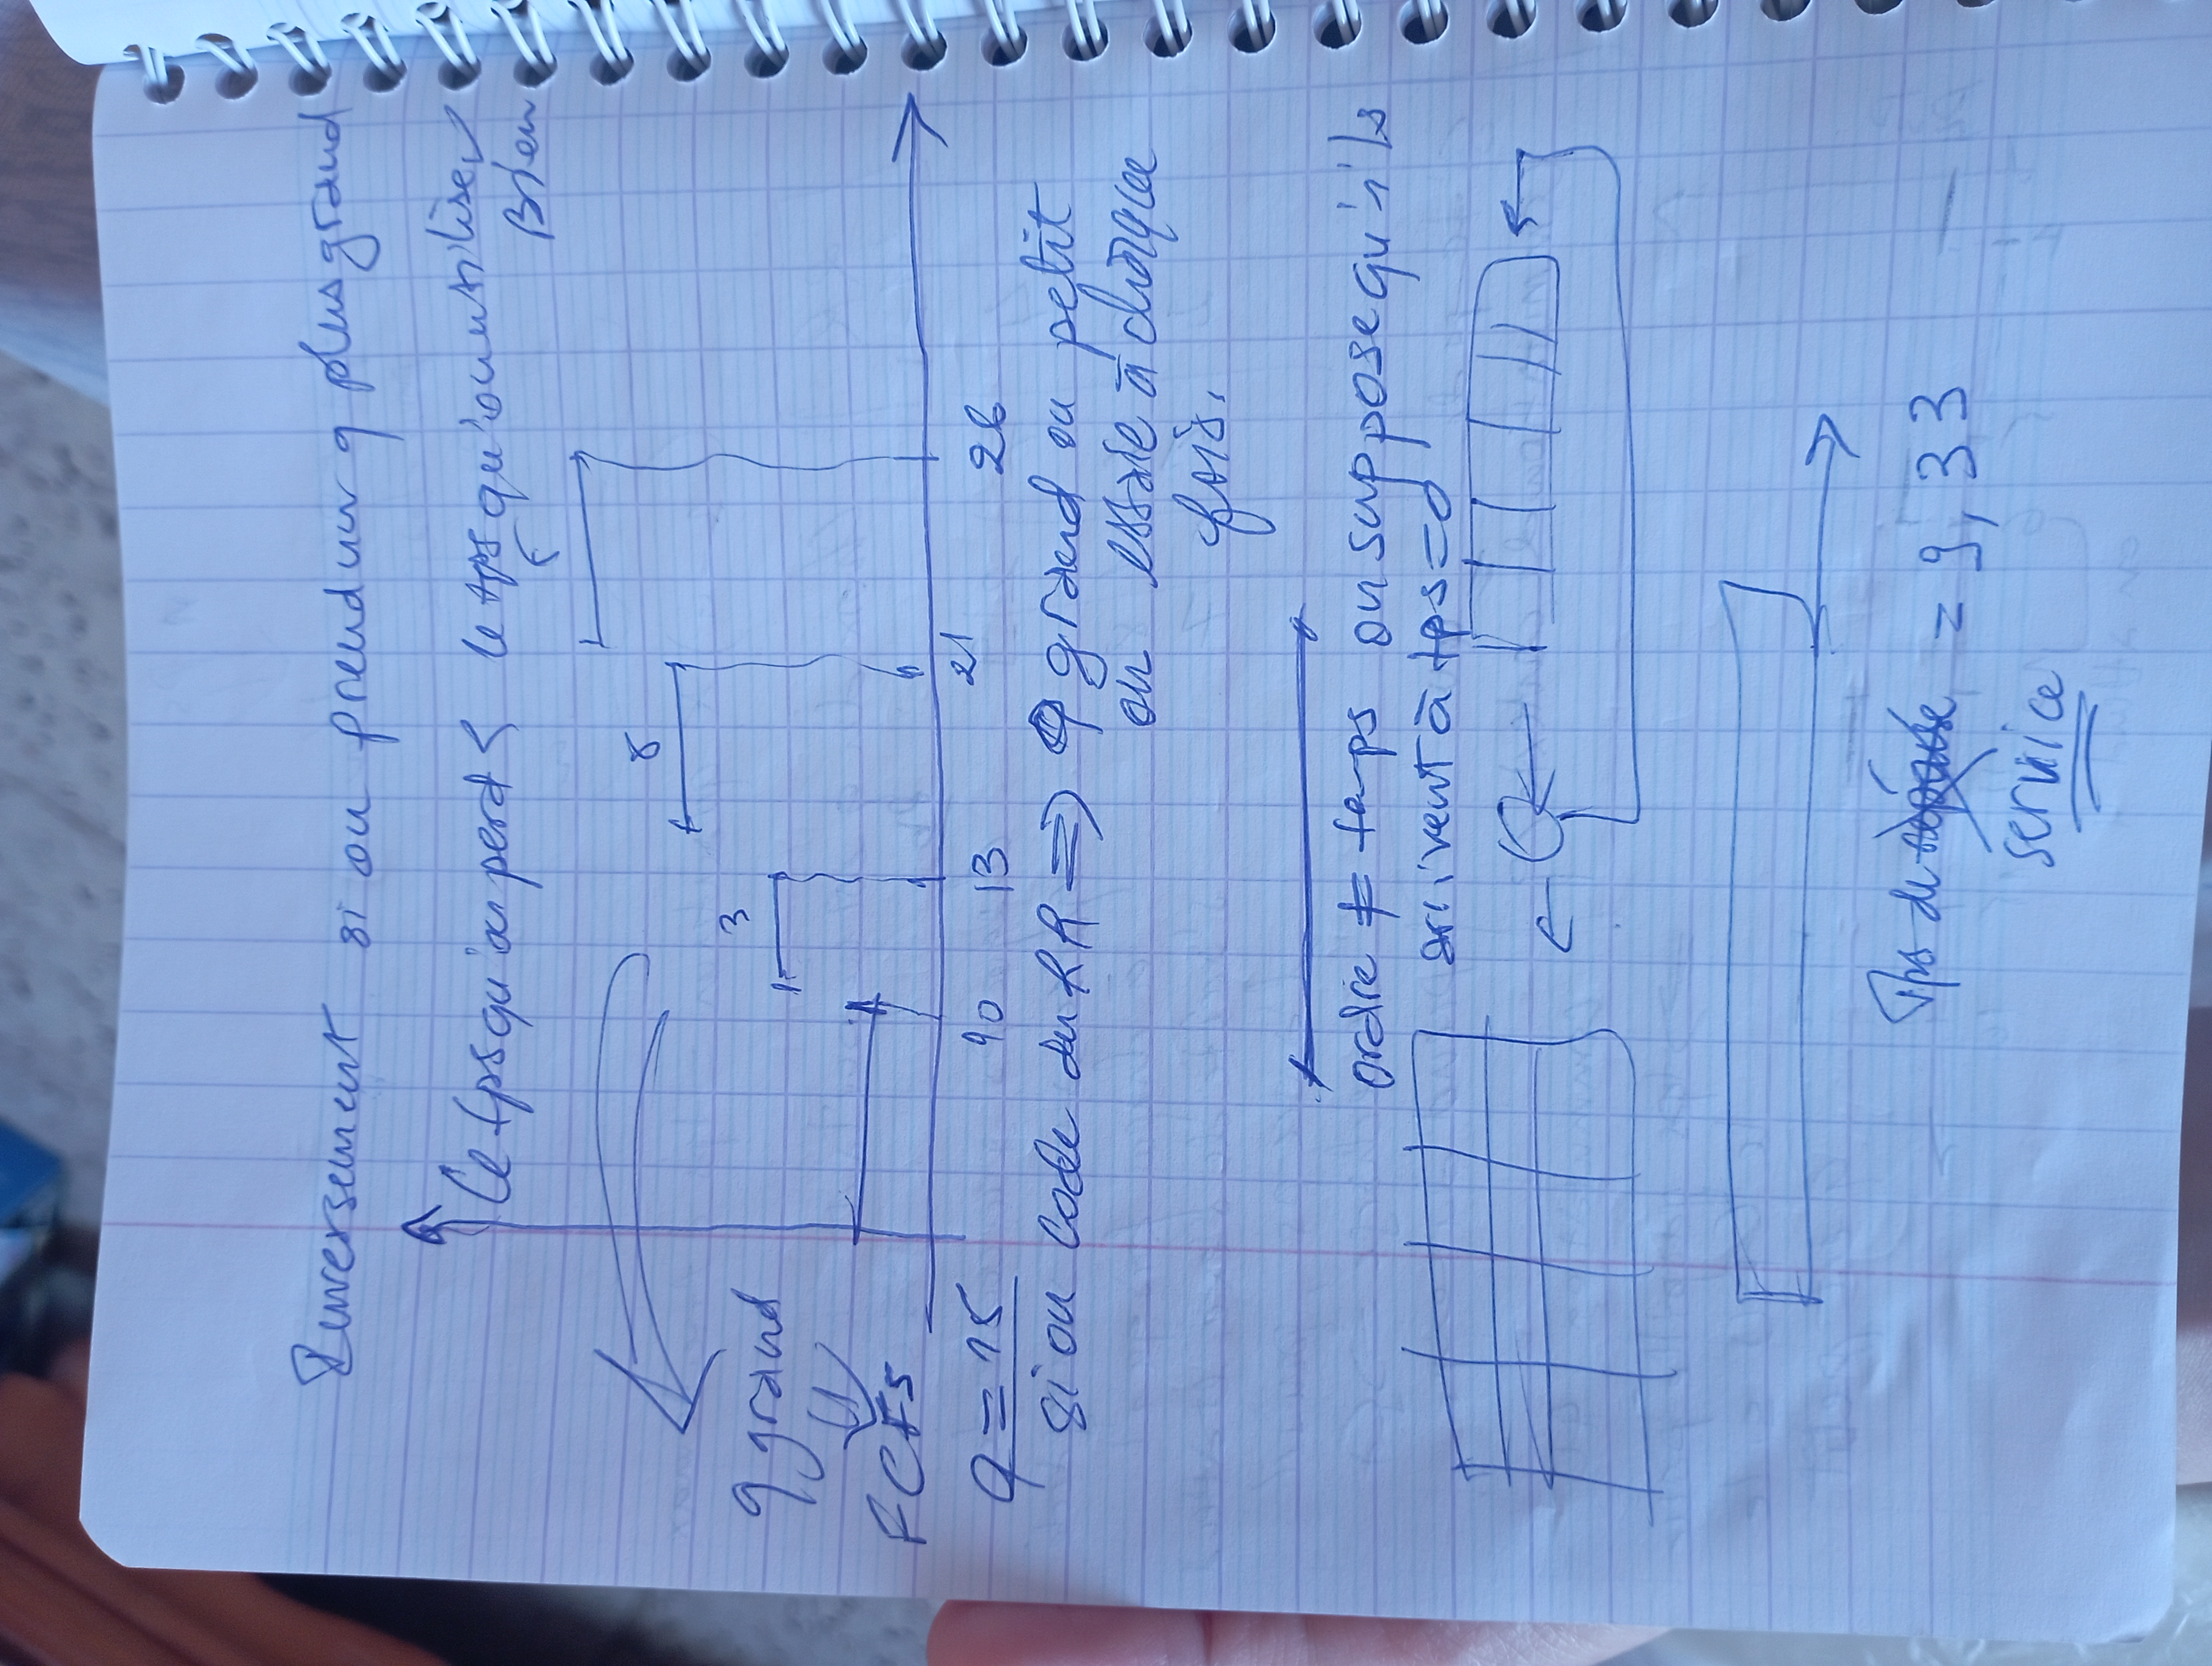 Inversement si on prend un q plus grand
le tps qu'on perd < le tps qu'on utilise
Bien
5
8
3
q grand
⇓
FCFS
q = 15
10 13 21 26
si on code du RR ⇒ q grand ou petit
on essaie à chaque
fois.
ordre ≠ temps on suppose qu'ils
arrivent à tps=0
Tps de réponse = 9,33
service